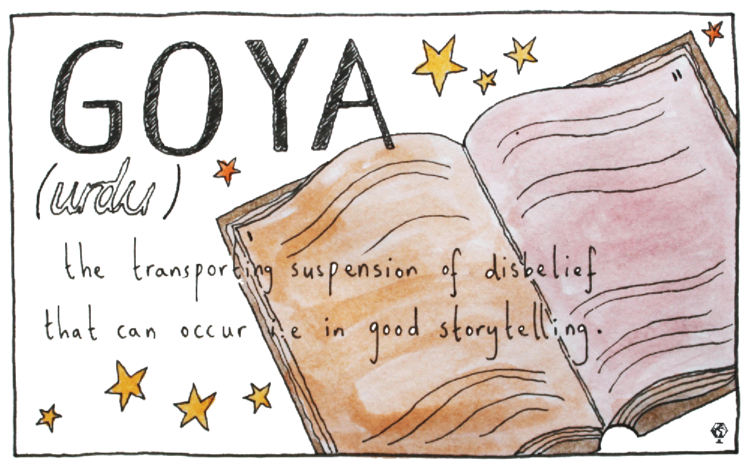 GOYA
(urdu)
the transporting suspension of disbelief
that can occur i.e in good storytelling.